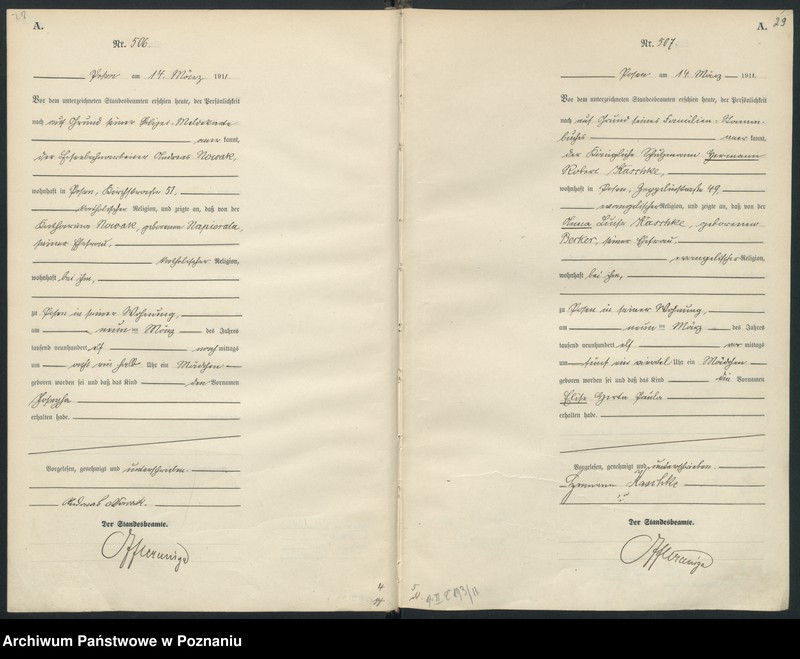 A.
Nr. 506.
Posen am 14. März 1911.
Vor dem unterzeichneten Standesbeamten erschien heute, der Persönlichkeit
nach auf Grund seiner Meldekarte
aner kannt,
der Eisenbahnarbeiter Andreas Nowak,
wohnhaft in Posen, Kirchstraße 51,
katholischer Religion, und zeigte an, daß von der
Katharina Nowak, geborene Napierala,
seiner Ehefrau,
katholischer Religion,
wohnhaft bei ihm,
zu Posen in seiner Wohnung,
am neun ten März des Jahres
tausend neunhundert elf nach mittags
um acht ein halb Uhr ein Mädchen
geboren worden sei und daß das Kind den Vornamen
Josepha
erhalten habe.
Vorgelesen, genehmigt und unterschrieben
Andreas Nowak.
Der Standesbeamte.
A.
29
Nr. 507.
Posen am 14. März 1911.
Vor dem unterzeichneten Standesbeamten erschien heute, der Persönlichkeit
nach auf Grund seines Familien-Stamm-
buchs aner kannt,
der Königliche Schutzmann Hermann
Robert Kaschke,
wohnhaft in Posen, Zeppelinstraße 49,
evangelischer Religion, und zeigte an, daß von der
Anna Luise Kaschke, geborenen
Becker, seiner Ehefrau,
evangelischer Religion,
wohnhaft bei ihm,
zu Posen in seiner Wohnung,
am neun ten März des Jahres
tausend neunhundert elf vor mittags
um fünf ein viertel Uhr ein Mädchen
geboren worden sei und daß das Kind die Vornamen
Elise Herta Paula
erhalten habe.
Vorgelesen, genehmigt und unterschrieben
Hermann Kaschke
Der Standesbeamte.
Archiwum Państwowe w Poznaniu